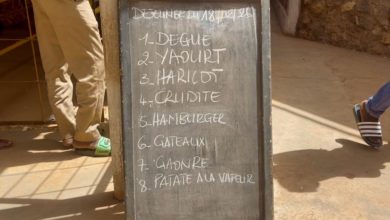 DEJEUNER DU 18/02/26
1_ DEGUE
2_ YAOURT
3_ HARICOT
4_ CRUDITE
5_ HAMBURGER
6_ GATEAUX
7_ GAONRE
8_ PATATE A LA VAPEUR